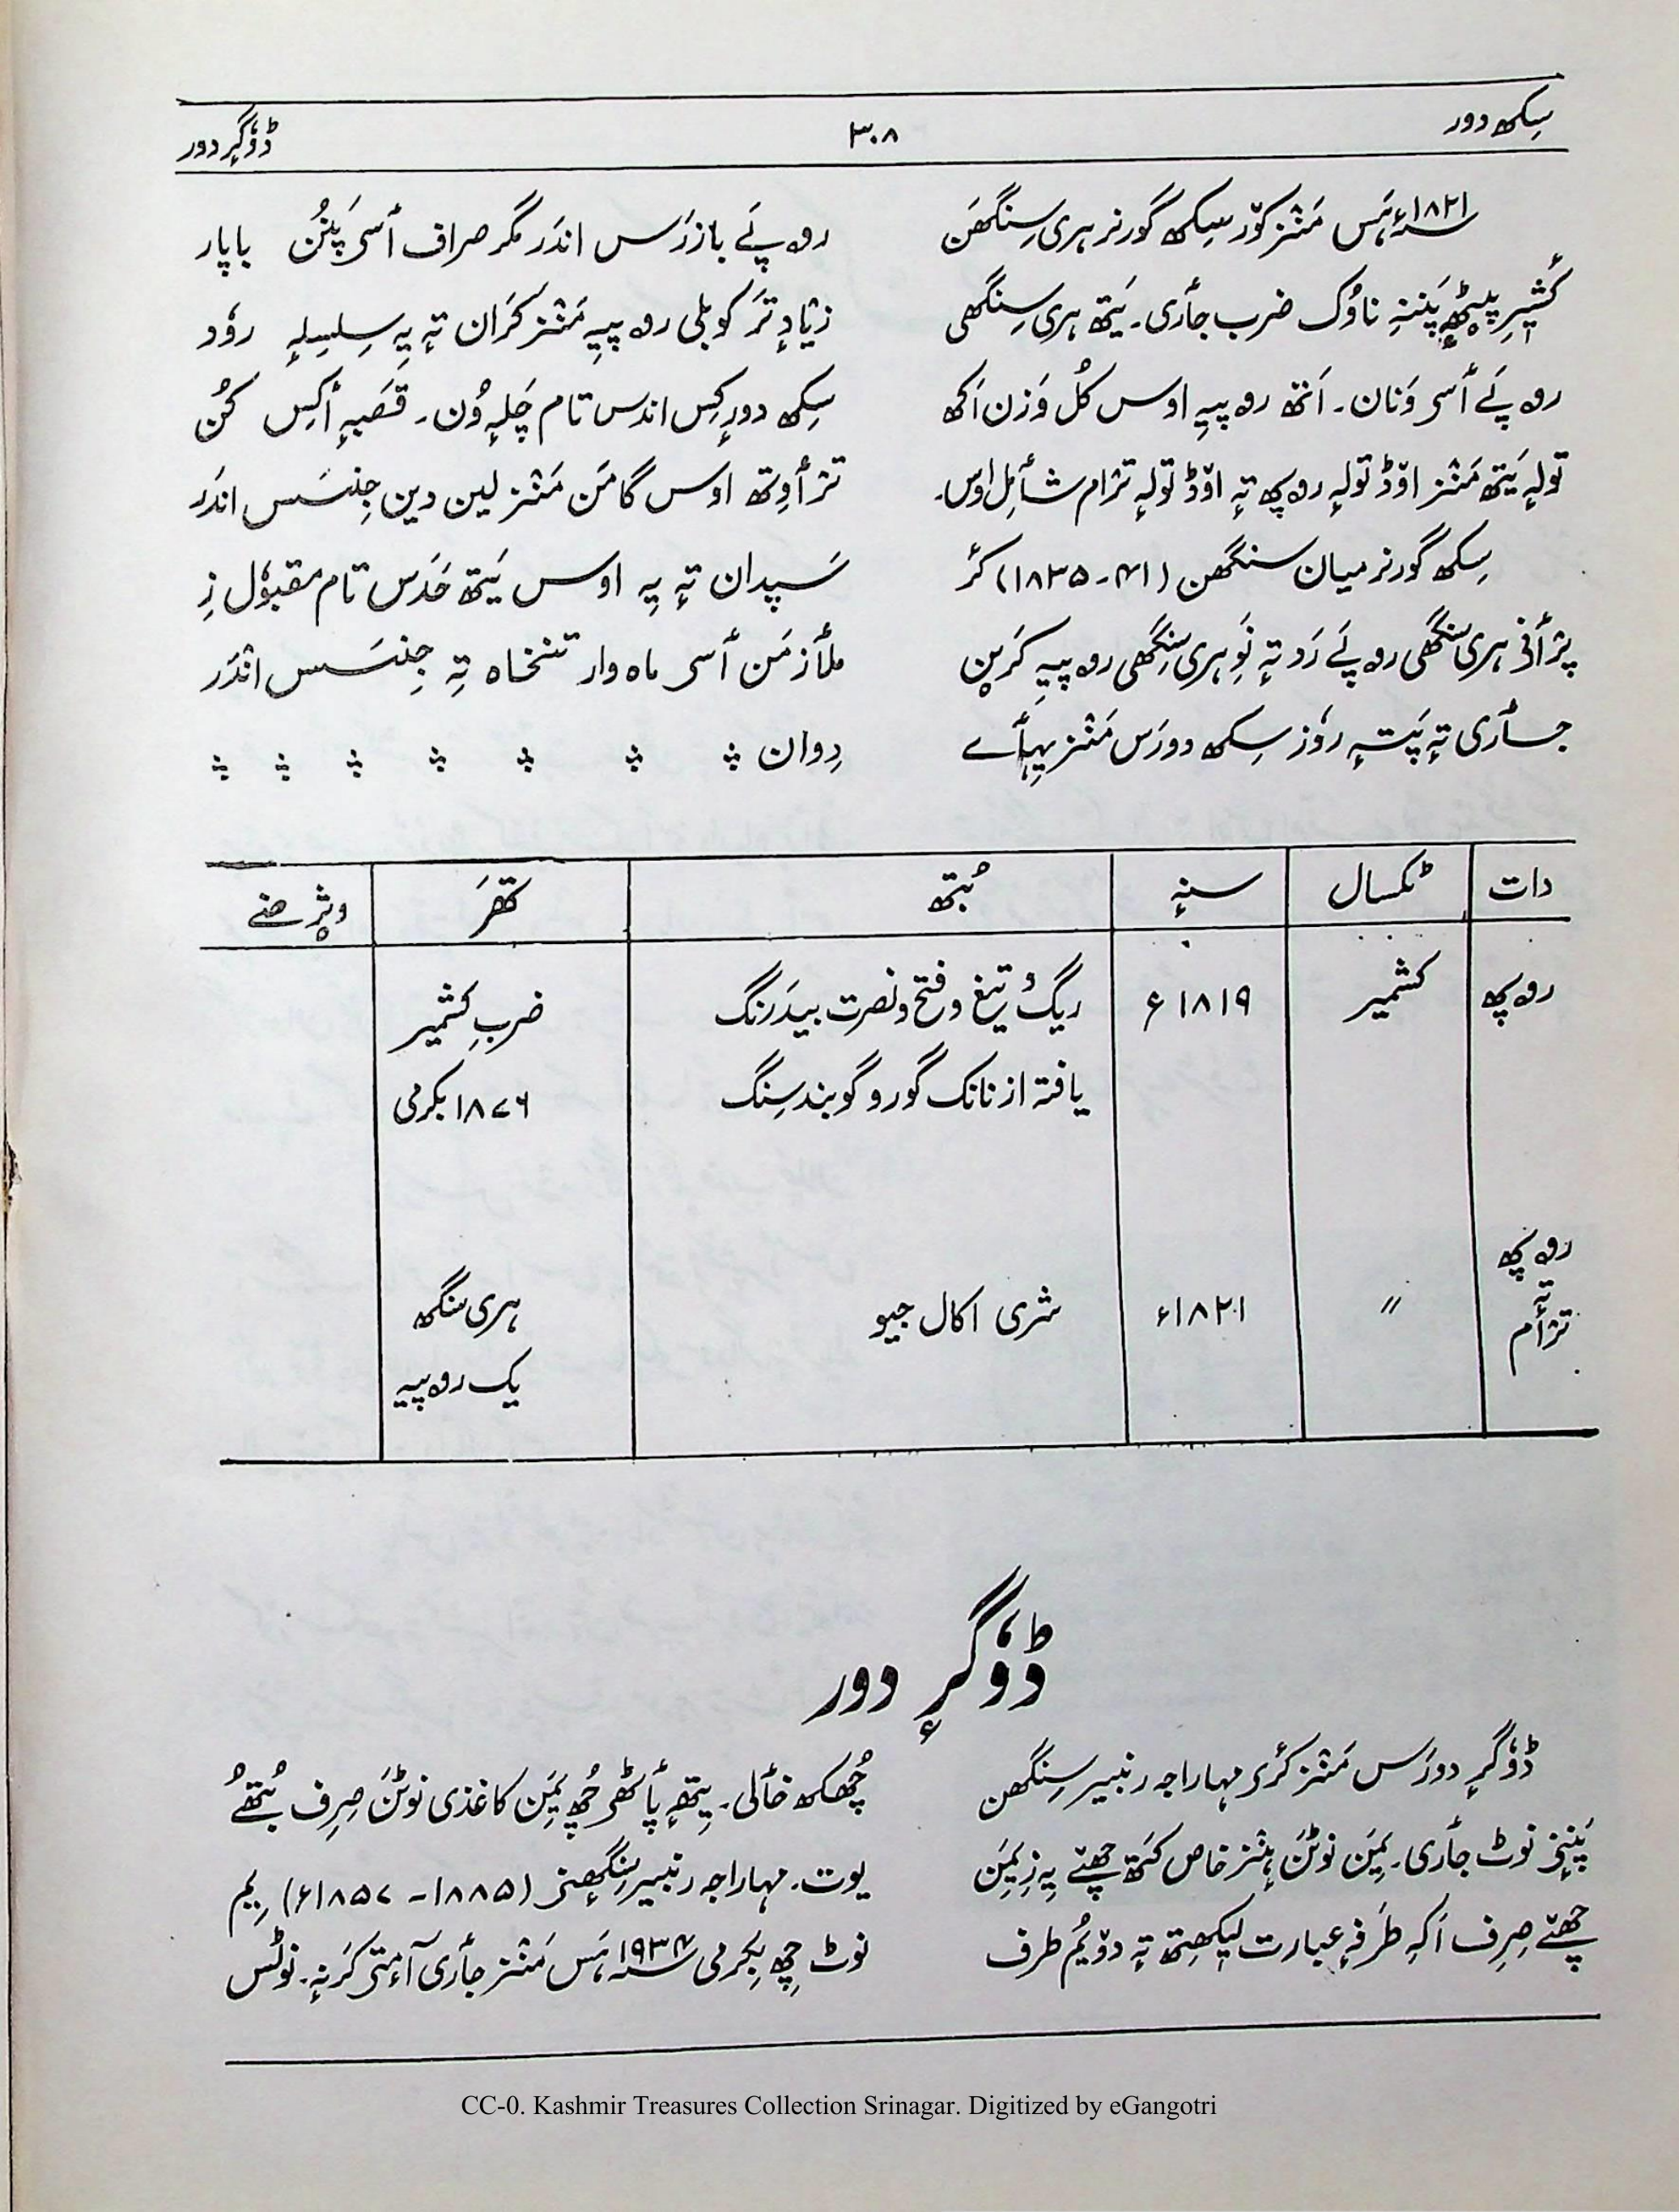 سِکھ دور
۳۰۸
ڈوٗگرٕ دور
۱۸۲۱ء ہَس مَنٛز کوٚر سِکھ گورنر ہری سِنگھَن
کٔشیٖرِ پؠٹھٕ پَننہِ ناوُک ضرب جٲری۔ یَتھ ہری سِنگھی
روپَے ٲسۍ وَنان۔ اَتھ روپیہِ اوس کُل وَزن اَکھ
تولہٕ یَتھ مَنٛز اوٚڈ تولہٕ روپھ تہٕ اوٚڈ تولہٕ ترٛام شٲمِل اوس۔
سِکھ گورنر میان سنگھن (۴۱-۱۸۳۵) کٔر
پرٛٲنۍ ہری سنگھی روپَے رَد تہٕ نَوِ ہری سِنگھی روپیہِ کَرِن
جٲری تہٕ پَتہٕ روٗز سِکھ دورَس مَنٛز یِہٲے
روپَے بازرَس اندَر مگر صراف ٲسۍ پَنُن باپار
زیٛادٕ تَر کوبلی روپیہِ مَنٛز کَران تہٕ یہِ سِلسِلہٕ روٗد
سِکھ دورٕ کِس اندس تام چَلہٕ وُن۔ قَصبہٕ أکِس کُن
ترٛٲوِتھ اوس گامَن مَنٛز لین دین جِنسَس اندَر
سَپدان تہٕ یہِ اوس یَتھ حَدَس تام مقبوٗل زِ
ملٲزمَن ٲسۍ ماہ وار تنخاہ تہِ جِنسَس انٛدَر
دِوان
دات ٹکسال سنہٕ بُتھ تھَر ویٛژھنے
روپھ کشمیر ۱۸۱۹ء ریگ و تیغ و فتح و نصرت بیدَرنگ ضربِ کشمیر
یافتہ از نانک گورو گوبند سِنگ ۱۸۷۶ بکرمی
روپھ تہٕ ترٛٲم 〃 ۱۸۲۱ء شری اکال جیو ہری سنگھ
یک روپیہ
ڈوٗگرٕ دور
ڈوٗگرٕ دورَس مَنٛز کٔرۍ مہاراجہ رنبیر سِنگھن
پَنٕنۍ نوٹ جٲری۔ یِمَن نوٹَن ہٕنٛز خاص کَتھ چھےٚ یہِ زِ یِمَن
چھےٚ صِرِف اَکہِ طرَفہٕ عبارت لیٖکھِتھ تہٕ دوٚیُم طرف
چُھکھ خٲلی۔ یِتھٕے پٲٹھۍ چُھ یِمَن کاغذی نوٹَن صِرِف بُتھُے
یوت۔ مہاراجہ رنبیر سِنگھنۍ (۱۸۸۵-۱۸۵۷ء) یِم
نوٹ چِھ بِکرمی ۱۹۳۴ ہَس مَنٛز جٲری آمٕتۍ کَرنہٕ۔ نوٹس
CC-0. Kashmir Treasures Collection Srinagar. Digitized by eGangotri